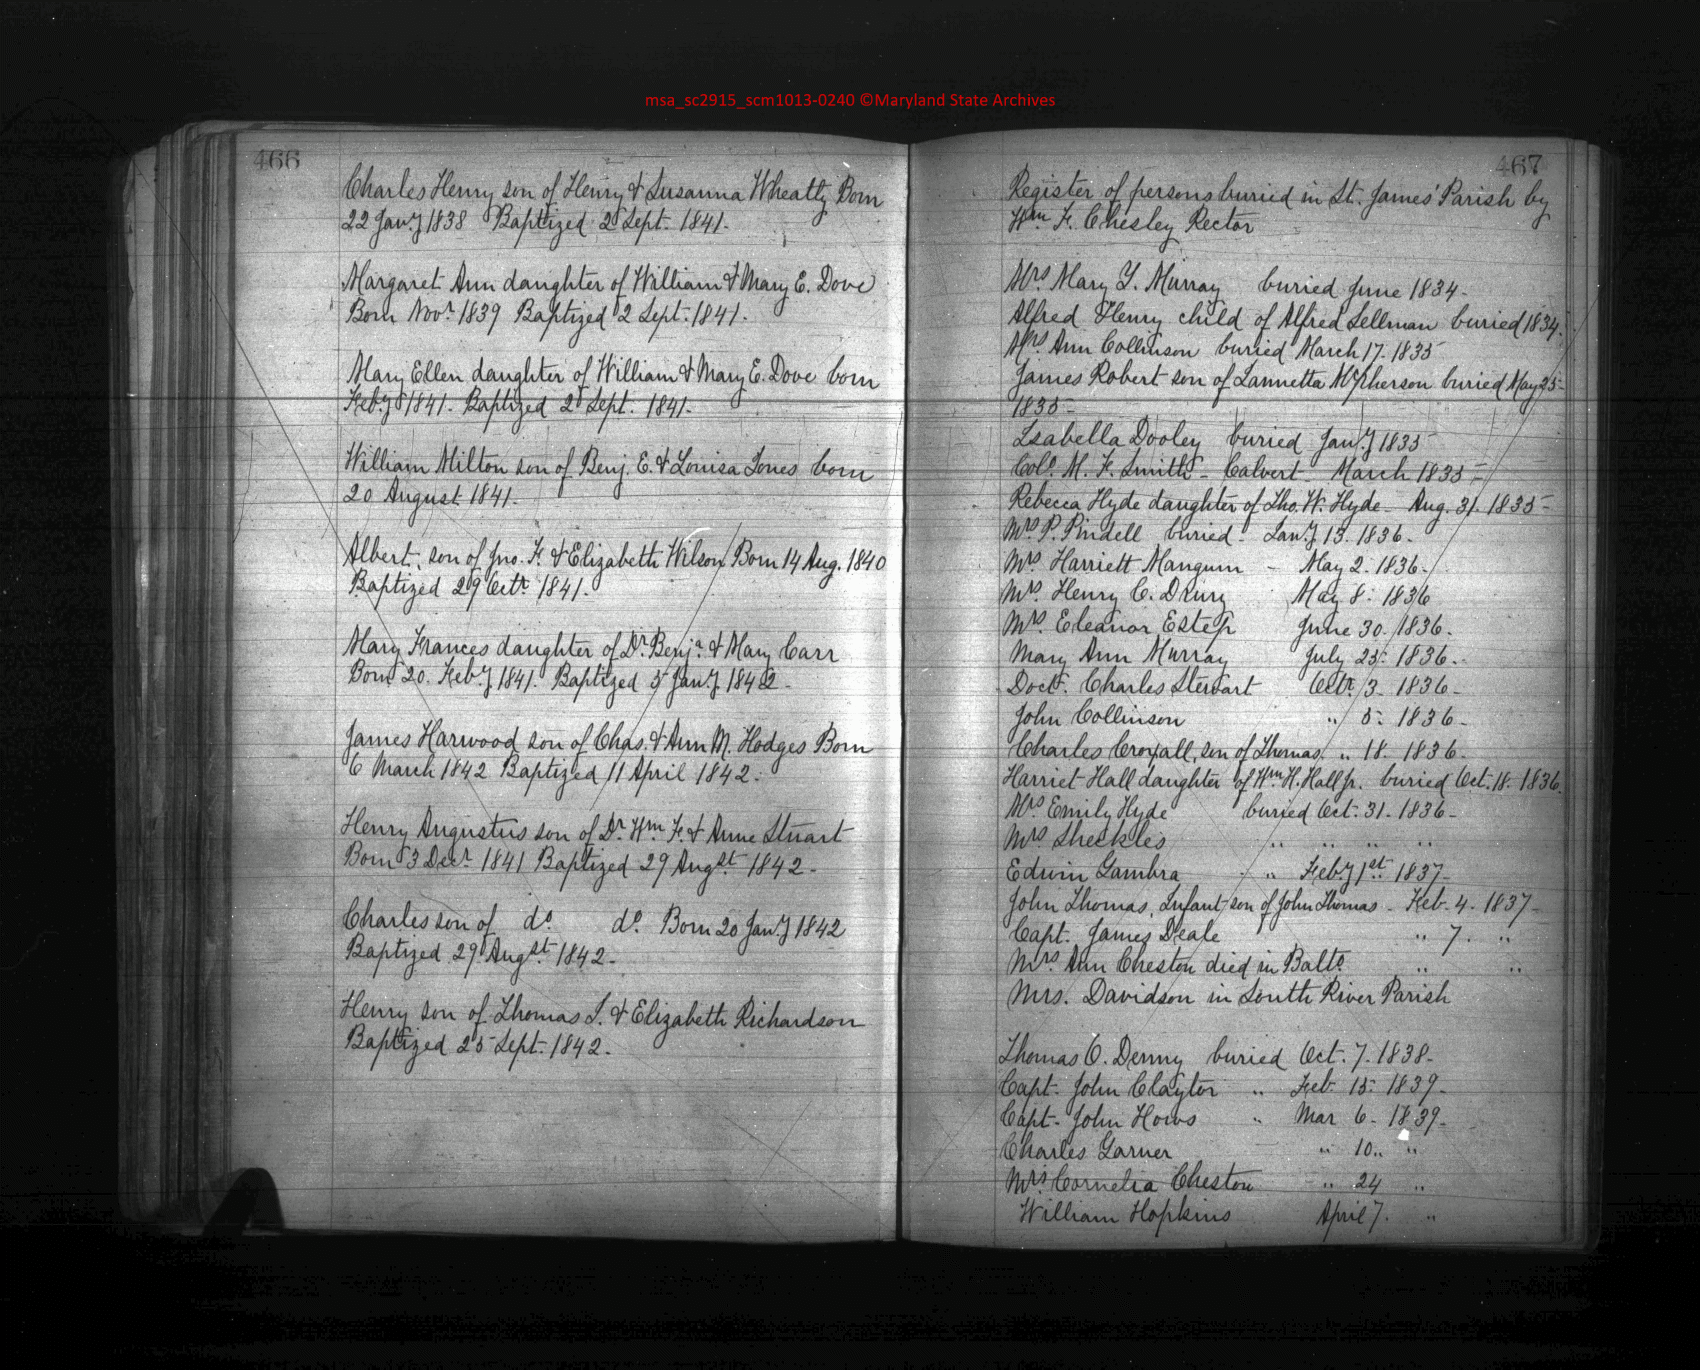 msa_sc2915_scm1013-0240 ©Maryland State Archives
466
Charles Henry son of Henry & Susanna Wheatly Born
22 Jany 1838 Baptized 2 Sept. 1841.
Margaret Ann daughter of William & Mary E. Dove
Born Novr. 1839 Baptized 2 Sept. 1841.
Mary Ellen daughter of William & Mary E. Dove born
Feby 1841. Baptized 2 Sept. 1841.
William Milton son of Benj. E. & Louisa Jones born
20 August 1841.
Albert, son of Jno. F. & Elizabeth Wilson Born 14 Aug. 1840
Baptized 29 Octr. 1841.
Mary Frances daughter of Dr. Benja. & Mary Carr
Born 20. Feby 1841. Baptized 5 Jany 1842.
James Harwood son of Chas. & Ann M. Hodges Born
6 March 1842 Baptized 11 April 1842.
Henry Augustus son of Dr. Wm. F. & Anne Stuart
Born 3 Decr. 1841 Baptized 29 Augst. 1842.
Charles son of do. do. Born 20 Jany 1842
Baptized 29 Augst. 1842.
Henry son of Thomas J. & Elizabeth Richardson
Baptized 25 Sept. 1842.
467
Register of persons buried in St. James' Parish by
Wm. F. Chesley Rector
Mrs. Mary Y. Murray buried June 1834.
Alfred Henry child of Alfred Sellman buried 1834.
Mrs. Ann Collinson buried March 17. 1835
James Robert son of Lannetta McPherson buried May 25
1835
Isabella Dooley buried Jany 1835
Colo. M. F. Smith - Calvert - March 1835
Rebecca Hyde daughter of Tho. W. Hyde - Aug. 31. 1835
Mrs. P. Pindell buried. Jany 13. 1836.
Mrs. Harriett Mangum - May 2. 1836.
Mrs. Henry C. Drury May 8. 1836
Mrs. Eleanor Estep June 30. 1836.
Mary Ann Murray July 25. 1836.
Doct. Charles Stewart Octr. 3. 1836.
John Collinson " 5. 1836.
Charles Croxall, son of Thomas. " 18. 1836.
Harriet Hall daughter of Wm. H. Hall jr. buried Oct. 18. 1836.
Mrs Emily Hyde buried Oct. 31. 1836.
Mrs Sheckles " " " "
Edwin Gambra " Feby 1st. 1837.
John Thomas, Infant son of John Thomas - Feb. 4. 1837.
Capt. James Deale " 7. "
Mrs. Ann Cheston died in Balto. " "
Mrs. Davidson in South River Parish
Thomas O. Denny buried Oct. 7. 1838.
Capt. John Claytor " Feb. 15. 1839.
Capt. John Hows " Mar 6. 1839.
Charles Garner " 10. "
Mrs. Cornelia Cheston " 24 "
William Hopkins April 7. "